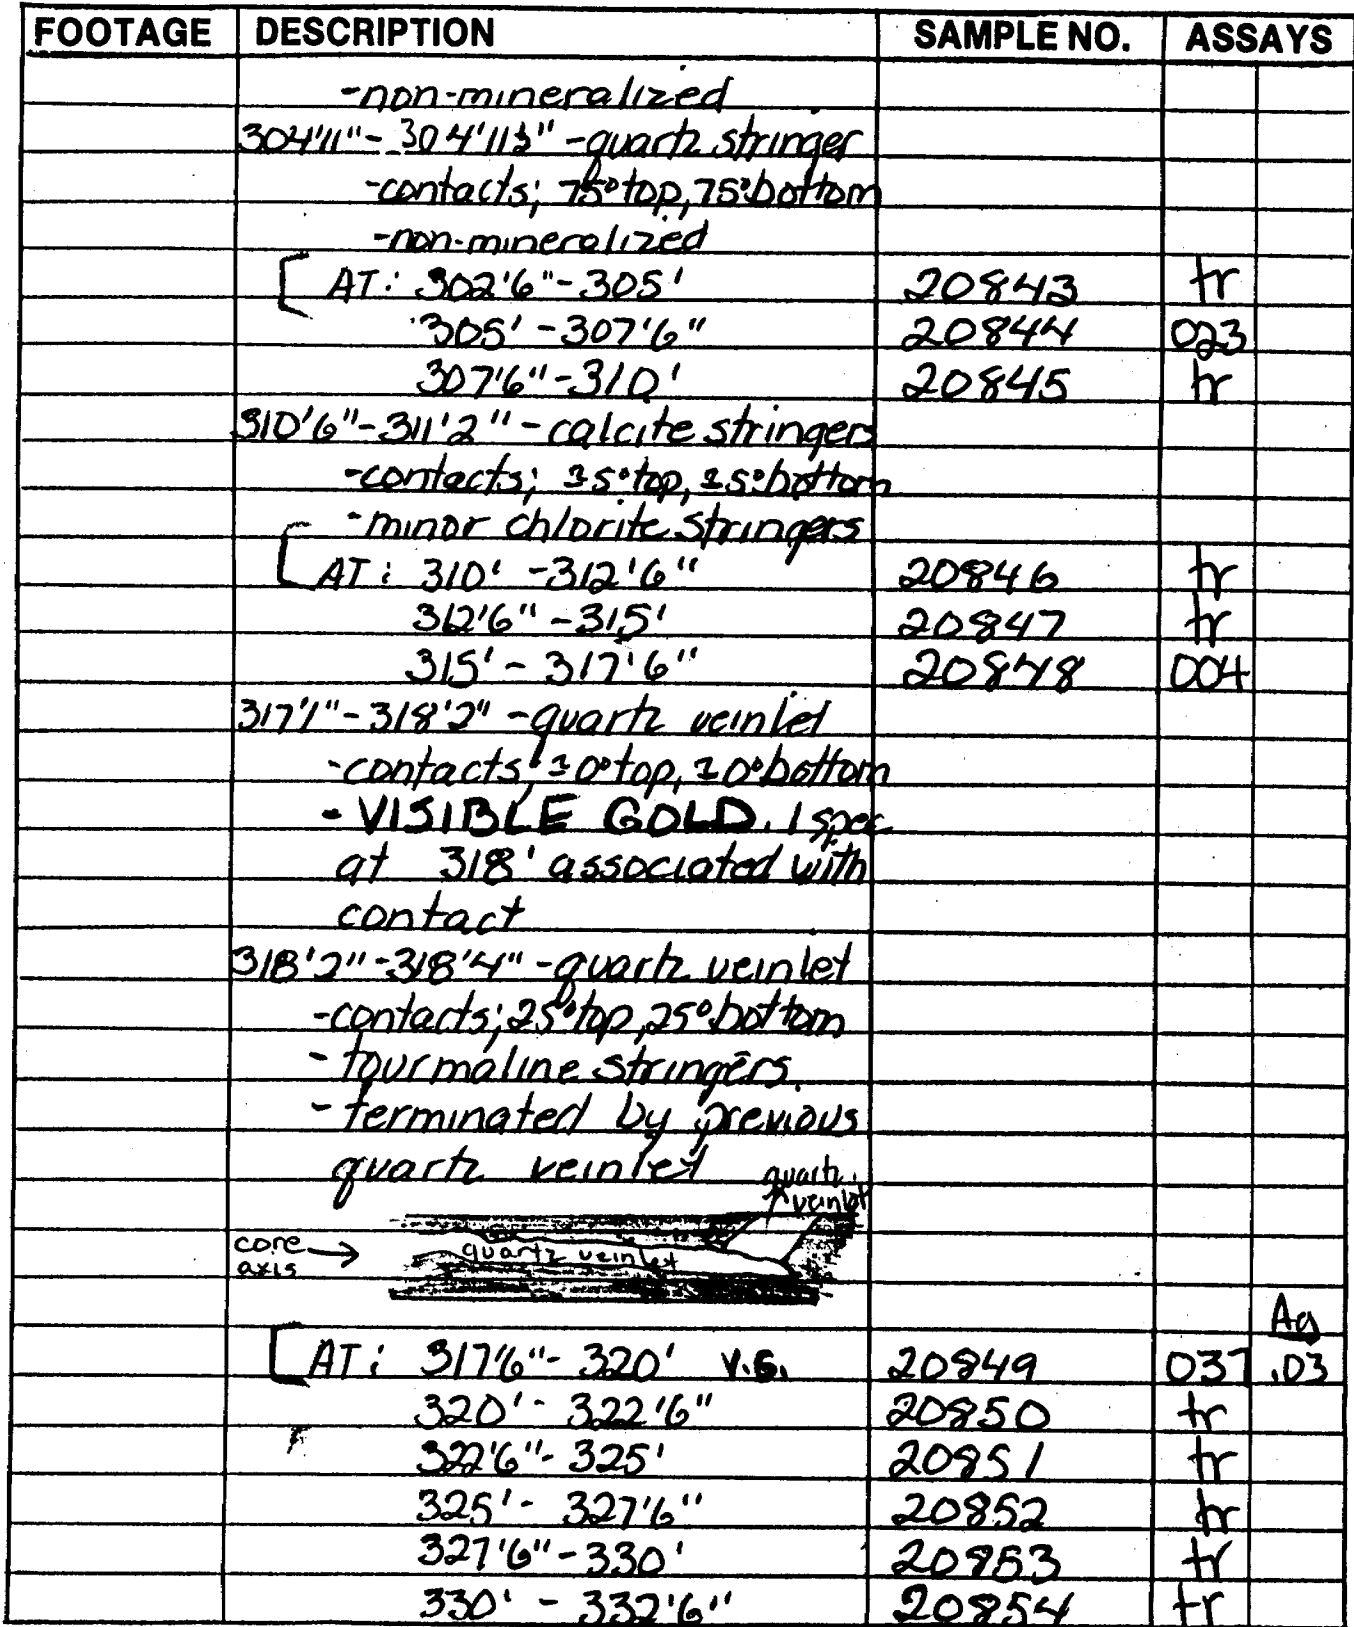 FOOTAGE DESCRIPTION SAMPLE NO. ASSAYS
-non-mineralized
304'11"- 304'11½" -quartz stringer
-contacts; 75° top, 75° bottom
-non-mineralized
[ AT: 302'6"-305' 20843 tr
305' -307'6" 20844 023
307'6"-310' 20845 tr
310'6"-311'2" -calcite stringers
-contacts; 35° top, 35° bottom
-minor chlorite stringers
[ AT: 310' -312'6" 20846 tr
312'6" -315' 20847 tr
315' - 317'6" 20848 004
317'1"-318'2" -quartz veinlet
-contacts; 10° top, 10° bottom
- VISIBLE GOLD. 1 spec
at 318' associated with
contact
318'2"-318'4" -quartz veinlet
-contacts; 25° top, 25° bottom
- tourmaline stringers.
- terminated by previous
quartz veinlet
quartz
veinlet
core →
axis
quartz veinlet
Ag
[ AT: 317'6"- 320' V.G. 20849 037 .03
320' - 322'6" 20850 tr
322'6"- 325' 20851 tr
325' - 327'6" 20852 tr
327'6"-330' 20853 tr
330' - 332'6" 20854 tr